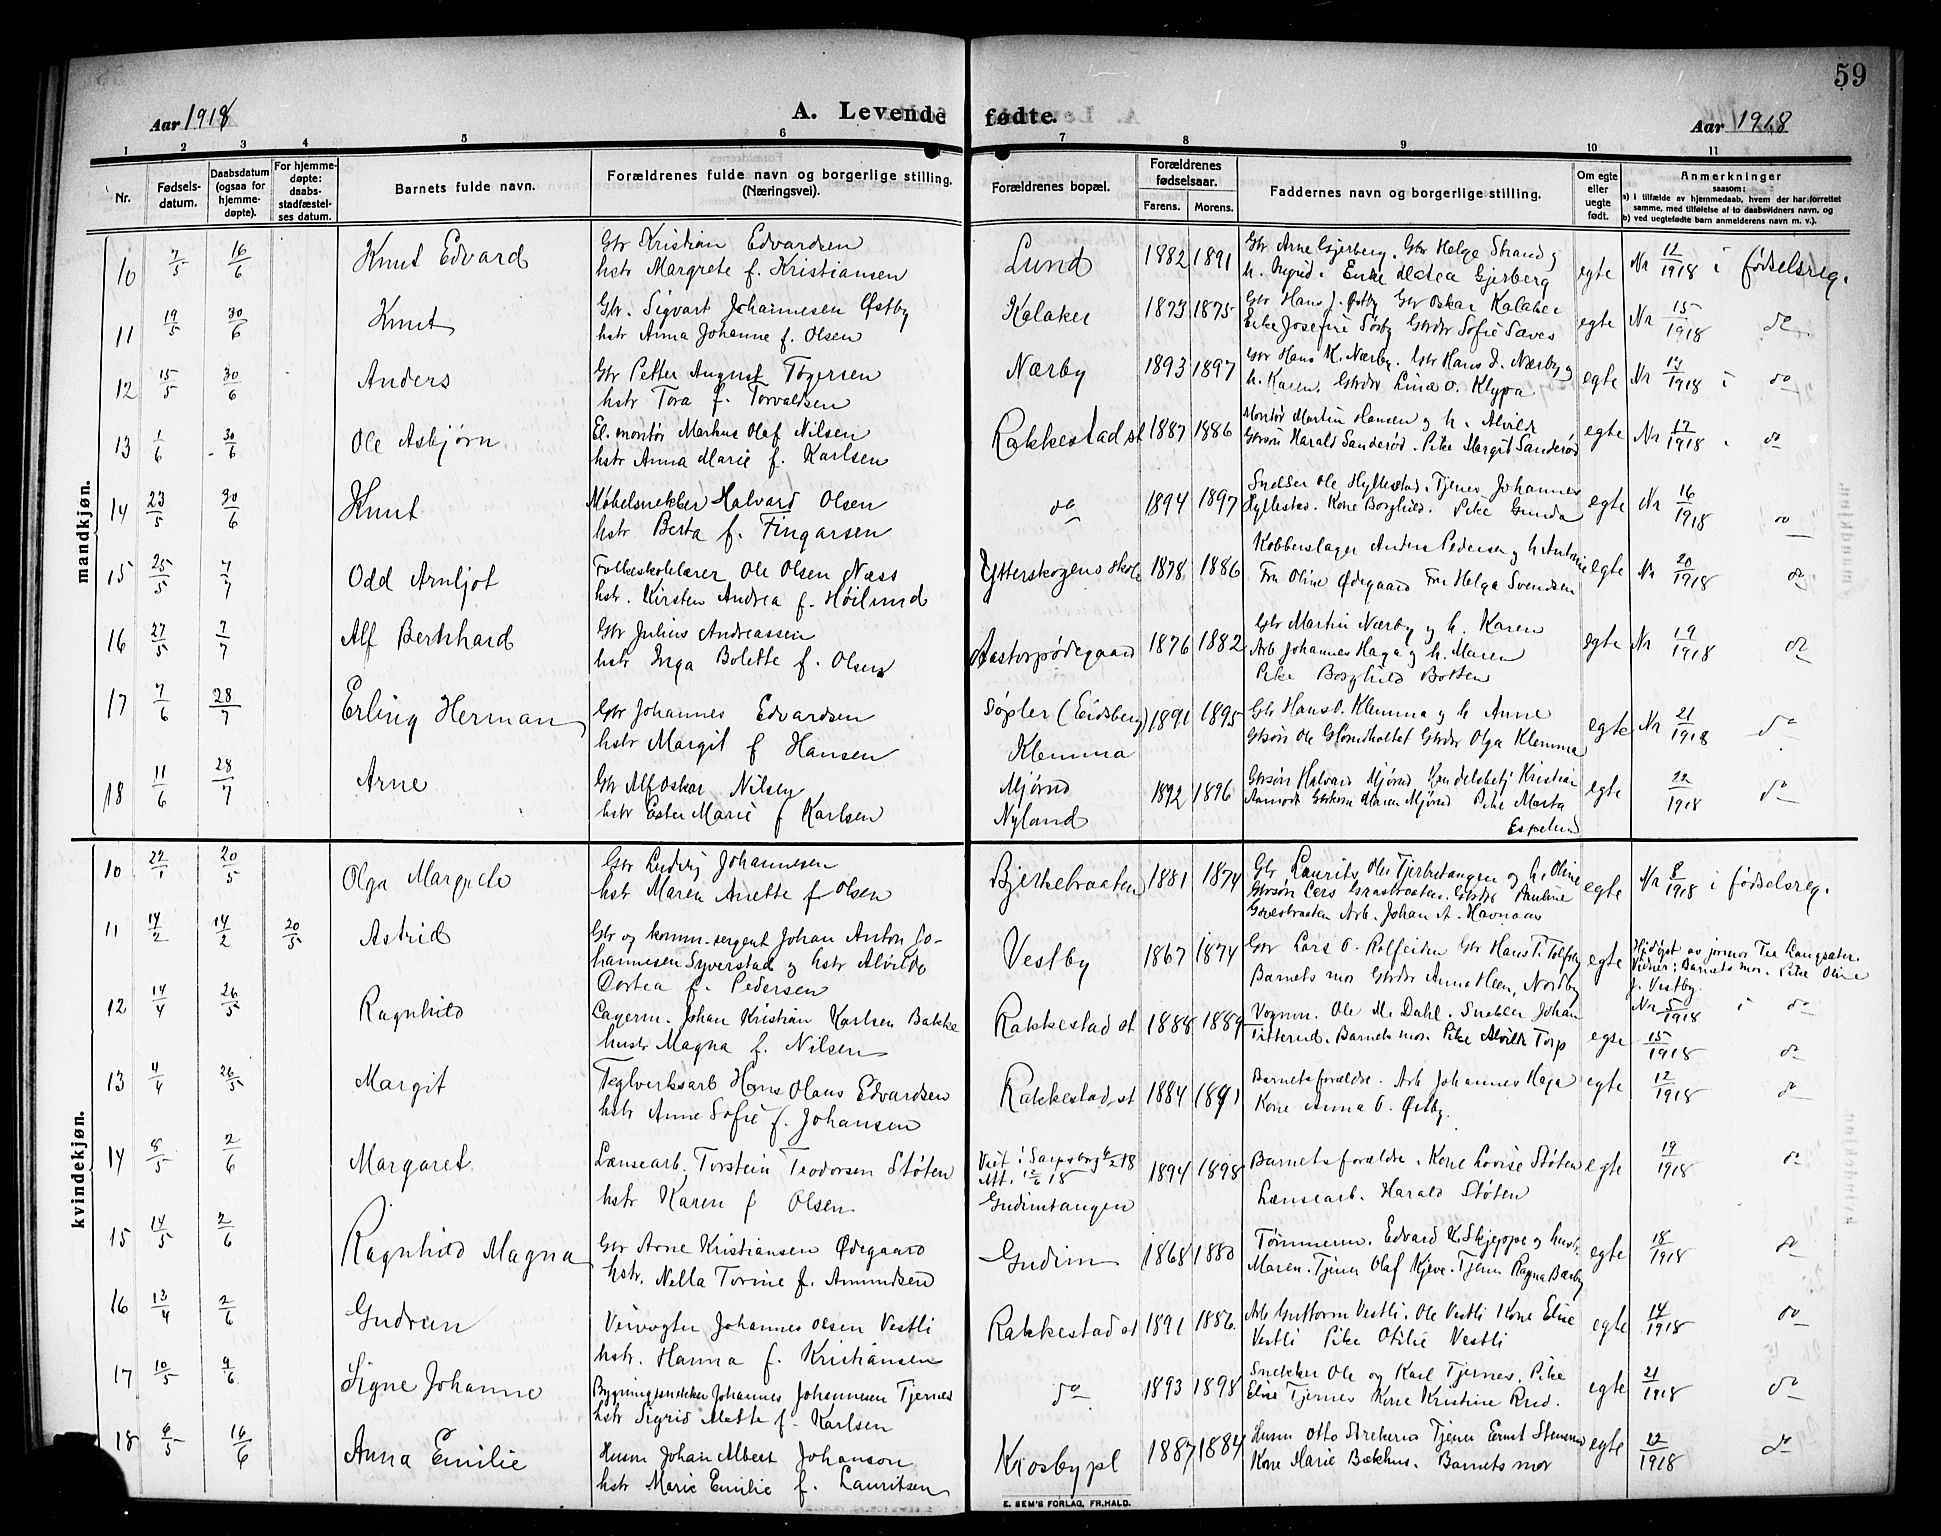 59
Aar 1918
A. Levende fødte.
Aar 1918
1 2 3 4 5 6 7 8 9 10 11
Nr.
Fødsels-
datum.
Daabsdatum
(ogsaa for
hjemme-
døpte).
For hjemme-
døpte:
daabs-
stadfæstel-
ses datum.
Barnets fulde navn.
Forældrenes fulde navn og borgerlige stilling.
(Næringsvei).
Forældrenes bopæl.
Forældrenes
fødselsaar.
Farens. Morens.
Faddernes navn og borgerlige stilling.
Om egte
eller
uegte
født.
Anmerkninger
saasom:
a) i tilfælde av hjemmedaab, hvem der har forrettet
samme, med tilføielse af to daabsvidners navn, og
b) ved uegtefødte barn anmelderens navn m. v.).
mandkjøn.
10 7/5 16/6 Knut Edvard Gbr Kristian Edvardsen
hstr Margrete f. Kristiansen
Lund 1882 1891 Gbr Arne Gjerberg. Gbr Helge Strand og
h. Ingrid. Enke Gjerberg
egte Nr 12/1918 i fødselsreg.
11 19/5 30/6 Knut Gbr. Sigvart Johannesen Østby
hstr Anna Johanne f. Olsen
Kalaker 1873 1875 Gbr Hans J. Østby Gbr Oskar Kalaker
Pike Josefine Søsby Gbrdtr Sofie
egte Nr 15/1918 do
12 15/5 30/6 Anders Gbr Petter August Tøgersen
hstr Tora f. Torvaldsen
Nærby 1893 1897 Gbr Hans K. Nærby. Gbr Hans D. Nærby og
h. Karen. Gbrdtr Lina O. Klypa
egte Nr 13/1918 i do
13 1/6 30/6 Ole Asbjørn El. montør Markus Olaf Nilsen
hstr Anna Marie f. Karlsen
Rakkestad st 1887 1886 Montør Martin Hansen og h. Alvilde
Gbrsøn Harald Sanderød. Pike Margit Sanderød
egte Nr 17/1918 i do
14 23/5 30/6 Knut Møbelsnekker Halvard Olsen
hstr Berta f. Fingarsen
do 1894 1897 Snekker Ole Hyllestad. Tjener Johannes
Hyllestad. Kone Borghild. Pike Gunda
egte Nr 16/1918 do
15 25/5 7/7 Odd Arnljot Folkeskolelærer Ole Olsen Næss
hstr. Kirsten Andrea f. Høilund
Ytterskogens skole 1878 1886 Kobberslager Anders Pedersen og h
Fru Oline Ødegaard Fru Helga Svendsen
egte Nr 20/1918 do
16 27/5 7/7 Alf Bernhard Gbr Julius Andreassen
hstr Inga Bolette f. Olsen
Aastorpødegaard 1876 1882 Gbr Martin Nærby og h. Karen
Arb Johannes Haga og h. Maren
Pike Borghild Botten
egte Nr 19/1918 do
17 7/6 28/7 Erling Herman Gbr Johannes Edvardsen
hstr Margit f Hansen
Søpler (Eidsberg)
Klemma
1891 1895 Gbr Hans O. Klemma og h Anne
Gbrsøn Ole Gbrdtr Olga Klemma
egte Nr 21/1918 do
18 11/6 28/7 Arne Gbr Alf Oskar Nilsen
hstr Ester Marie f Karlsen
Mjørud
Nyland
1892 1896 Gbrsøn Halvard Mjørud Handelsbetj Kristian
Aamodt Maren Mjørud Pike Marta
Espelund
egte 22/1918 do
kvindekjøn.
10 22/1 20/5 Olga Margrete Gbr Ludvig Johannesen
hstr Maren Anette f Olsen
Bjerkebraaten 1881 1874 Gbr Laurits Olsen og h. Oline
Gbrsøn Lars Pauline
Arb. Johan A. Havnaas
egte Nr 8/1918 i fødselsreg.
11 14/2 14/2 20/5 Astrid Gbr og komm. sergent Johan Anton Jo-
hannesen Syverstad og hstr Alvilde
Dortea f. Pedersen
Vestby 1867 1874 Gbr Lars O. Gbr Hans T.
Barnets mor Gbrdtr Anna Heen, Nordby
egte Hjdøpt av jormor Tea Langsæter.
Vidner: Barnets mor. Pike Oline
J. Vestby.
Nr 5/1918 i do
12 14/4 26/5 Ragnhild Lagerm. Johan Kristian Karlsen Bakke
hustr Magna f. Nilsen
Rakkestad st 1888 1889 Vognm. Ole M. Dahl. Snekker Johan
Titterud. Barnets mor. Pike Alvilde Torp
egte 15/1918 do
13 4/4 26/5 Margit Teglverksarb Hans Olaus Edvardsen
hstr Anne Sofie f. Johansen
Rakkestad st 1884 1891 Barnets forældre. Arb Johannes Haga
Kone Anna O. Østby.
egte 12/1918 do
14 8/5 2/6 Margaret Lænsearb. Torstein Teodorsen Støten
hstr Karen f Olsen
Viet i Sarpsborg 18
Att. 18
Gudimtangen
1894 1898 Barnets forældre. Kone Lovise Støten
Lænsearb. Harald Støten
egte 19/1918 do
15 14/5 2/6 Ragnhild Magna Gbr Arne Kristiansen Ødegaard
hstr. Nella Torine f. Amundsen
Gudim 1868 1880 Tømmerm. Edvard K. Skjeppe og hustr.
Maren. Tjener Olaf Kjeve. Tjener Ragna Bærby
egte 18/1918 do
16 13/4 2/6 Gudrun Veivogter Johannes Olsen Vestli
hstr. Hanna f. Kristiansen
Rakkestad st 1891 1886. Arb Guttorm Vestli. Ole Vestli Kone Elise
Vestli Pike Otilie Vestli
egte 14/1918 do
17 10/5 9/6 Signe Johanne Bygningssnekker Johannes Johannesen Tjernes
hstr Sigrid Mette f. Karlsen
do 1893 1898 Snekker Ole og Karl Tjernes. Pike
Elise Tjernes Kone Kristine Rud.
egte 21/1918 do
18 9/5 16/6 Anna Emilie Husm Johan Albert Johanson
hstr Marie Emilie f. Lauritsen
Krosbypl 1887 1884 Husm Otto Tjener Ernst
Kone Marie Bækhus. Barnets mor
egte 22/1918 do
E. SEM'S FORLAG, FR.HALD.